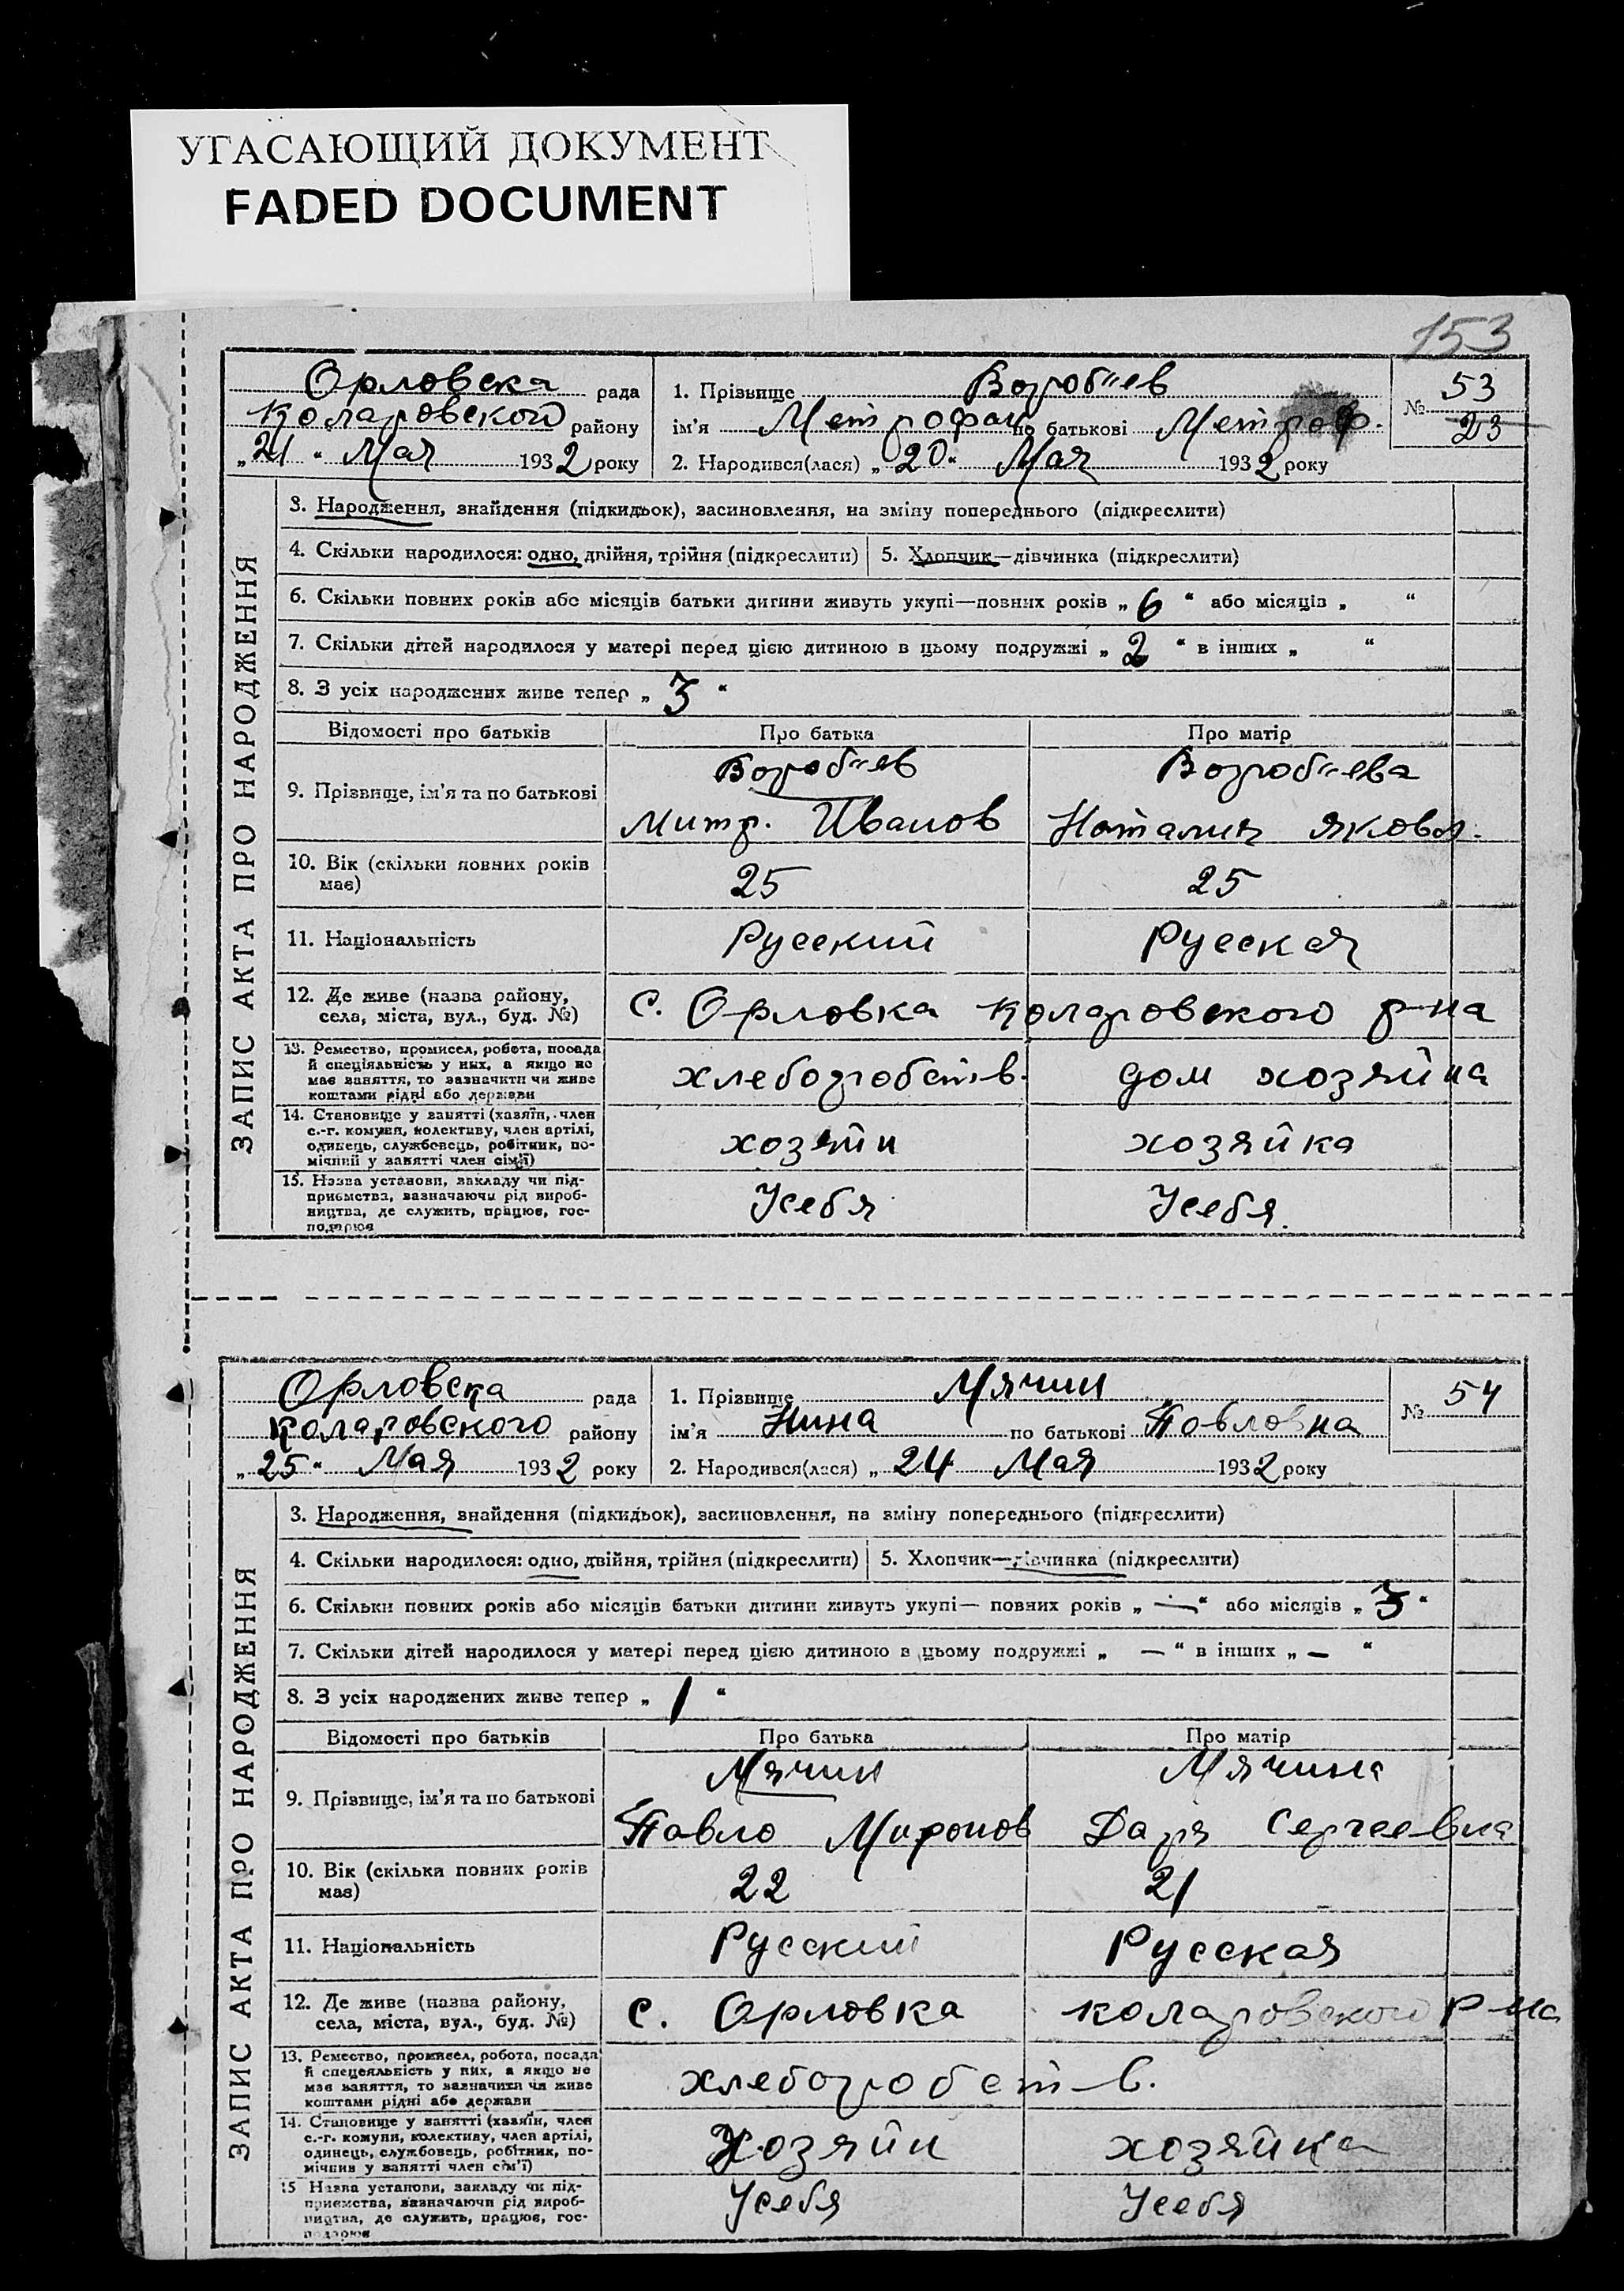 УГАСАЮЩИЙ ДОКУМЕНТ
FADED DOCUMENT
153
Орловска рада
Коларовской району
„21“ Мая 1932 року
1. Прізвище Воробьев
ім'я Метрофан по батькові Метроф.
2. Народився(лася) „20“ Мая 1932 року
№ 53
23
ЗАПИС АКТА ПРО НАРОДЖЕННЯ
3. Народження, знайдення (підкидьок), засиновлення, на зміну попереднього (підкреслити)
4. Скільки народилося: одно, двійня, трійня (підкреслити) 5. Хлопчик—дівчинка (підкреслити)
6. Скільки повних років або місяців батьки дитини живуть укупі—повних років „6“ або місяців „ “
7. Скільки дітей народилося у матері перед цією дитиною в цьому подружжі „2“ в інших „ “
8. З усіх народжених живе тепер „3“
Відомості про батьків Про батька Про матір
9. Прізвище, ім'я та по батькові
Воробьев Воробьева
Митр. Иванов Наталия Яковл.
10. Вік (скільки повних років має) 25 25
11. Національність Русский Русская
12. Де живе (назва району, села, міста, вул., буд. №) с. Орловка Коларовского р-на
13. Ремество, промисел, робота, посада
й спеціяльність у них, а якщо не
має заняття, то зазначити чи живе
коштами рідні або держави
хлеборобств. дом хозяйка
14. Становище у занятті (хазяїн, член
с.-г. комуни, колективу, член артілі,
одинець, службовець, робітник, по-
мічний у занятті член сім'ї)
хозяйн хозяйка
15. Назва установи, закладу чи під-
приємства, зазначаючи рід вироб-
ництва, де служить, працює, гос-
подарює
Усебя Усебя.
Орловска рада
Коларовского району
„25“ Мая 1932 року
1. Прізвище Мячин
ім'я Нина по батькові Павловна
2. Народився(лася) „24 Мая 1932 року
№ 54
ЗАПИС АКТА ПРО НАРОДЖЕННЯ
3. Народження, знайдення (підкидьок), засиновлення, на зміну попереднього (підкреслити)
4. Скільки народилося: одно, двійня, трійня (підкреслити) 5. Хлопчик—дівчинка (підкреслити)
6. Скільки повних років або місяців батьки дитини живуть укупі— повних років „—“ або місяців „3“
7. Скільки дітей народилося у матері перед цією дитиною в цьому подружжі „ —“ в інших „— “
8. З усіх народжених живе тепер „1“
Відомості про батьків Про батька Про матір
9. Прізвище, ім'я та по батькові
Мячин Мячина
Павло Миронов Даря Сергеевна
10. Вік (скілька повних років має) 22 21
11. Національність Русский Русская
12. Де живе (назва району, села, міста, вул., буд. №) с. Орловка Коларовского р-на
13. Ремество, промисел, робота, посада
й спецеяльність у них, а якщо не
має заняття, то зазначити чи живе
коштами рідні або держави
хлеборобств.
14. Становище у занятті (хазяїн, член
с.-г. комуни, колективу, член артілі,
одинець, службовець, робітник, по-
мічнив у занятті член сім'ї)
Хозяйн хозяйка
15 Назва установи, закладу чи під-
приємства, зазначаючи рід вироб-
ництва, де служить, працює, гос-
подарює
Усебя Усебя